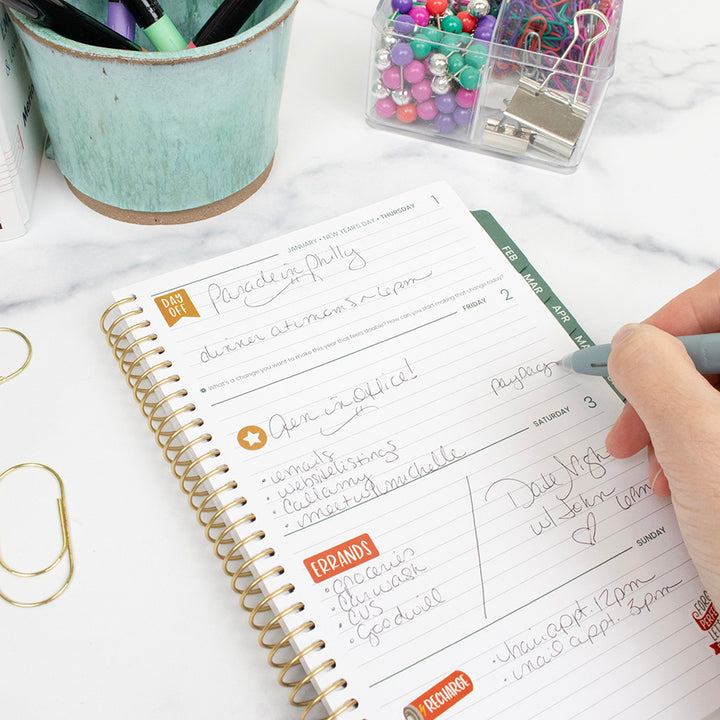 JANUARY • NEW YEAR'S DAY • THURSDAY 1
DAY OFF
Parade in Philly
dinner at mom's ~ 6pm
What's a change you want to make this year that feels doable? How can you start making that change today?
FRIDAY 2
Open in Office!
payday
• emails
• website listings
• call amy
• meet w/ michelle
SATURDAY 3
ERRANDS
• groceries
• carwash
• CVS
• Goodwill
Date Night
w/ John 6pm
SUNDAY
RECHARGE
• hair appt. 12pm
• nail appt. 3pm
FEB
MAR
APR